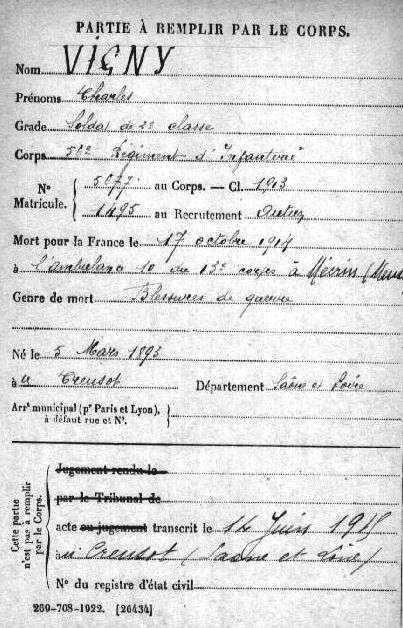 PARTIE À REMPLIR PAR LE CORPS.
Nom VIGNY
Prénoms Charles
Grade Soldat de 2e classe
Corps 50e Régiment d'Infanterie
Nos Matricule.
5077 au Corps. — Cl. 1913
1495 au Recrutement Autun
Mort pour la France le 17 octobre 1914
à l'ambulance 10 du 13e corps à Mécrin (Meuse
Genre de mort Blessures de guerre
Né le 5 Mars 1893
à u Creusot Département Saône et Loire
Arrt municipal (pr Paris et Lyon),
à défaut rue et N°.
Cette partie
n'est pas à remplir
par le Corps.
Jugement rendu le
par le Tribunal de
acte ou jugement transcrit le 14 Juin 1915
au Creusot (Saone et Loire)
N° du registre d'état civil
269-708-1922. [26434]